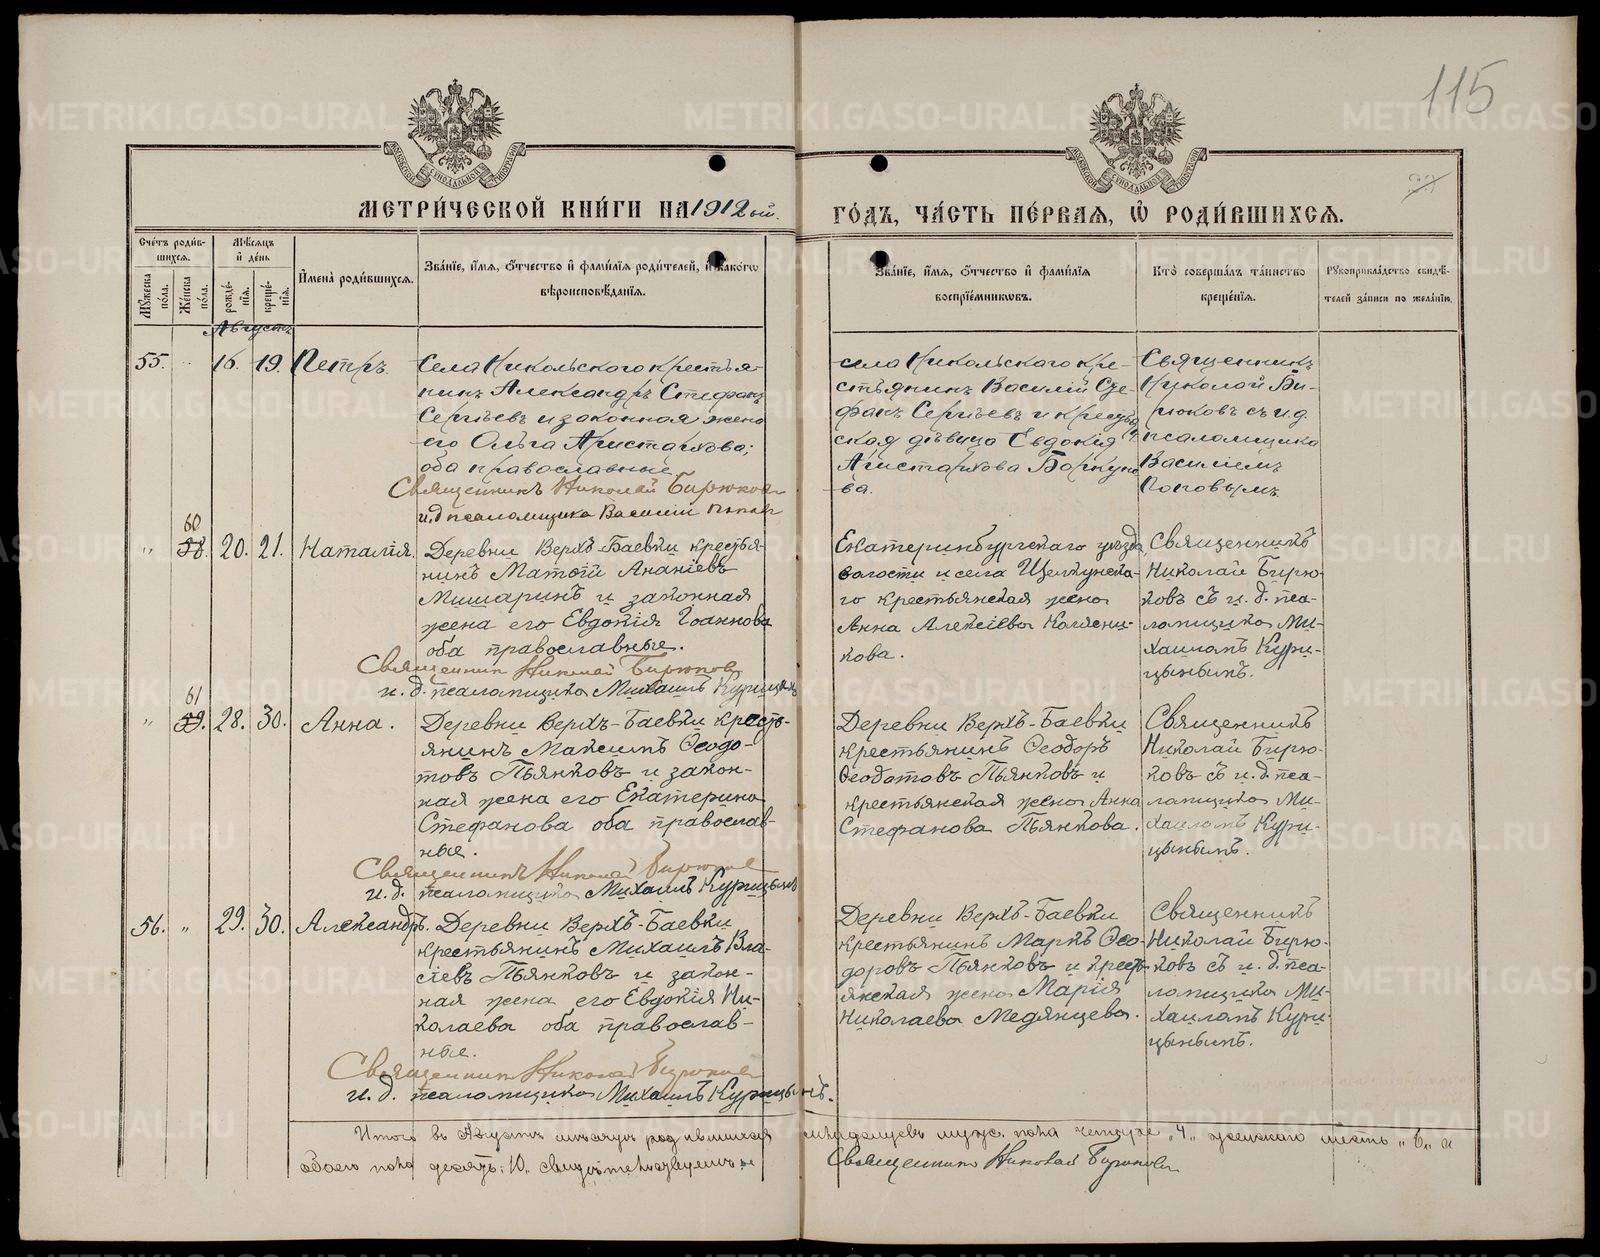 115
МЕТРИ́ЧЕСКОЙ КНИ́ГИ НА 1912 ый.
ГО́ДЪ, ЧА́СТЬ ПЕ́РВАЯ, Ѡ҆ РОДИ́ВШИХСЯ.
Сче́тъ роди́в-
шихся.
Му́жеска по́ла.
Же́нска по́ла.
Мѣ́сяцъ
и҆ де́нь
рожде́-
нїя.
креще́-
нїя.
И҆мена̀ роди́вшихся.
Зва́нїе, и҆́мя, ѻ҆́тчество и҆ фами́лїя роди́телей, и҆ како́гѡ
вѣроисповѣ́данїя.
Зва́нїе, и҆́мя, ѻ҆́тчество и҆ фами́лїя
воспрїе́мниковъ.
Кто̀ соверша́лъ та́инство
креще́нїя.
Рꙋкоприкла́дство свидѣ́-
телей за́писи по жела́нїю.
Августъ
55.
16. 19.
Петръ.
Села Никольского крестья-
нинъ Александръ Стефанъ
Сергѣевъ и законная жена
его Ольга Аристархова;
оба православные
Священникъ Николай Бирюков
и.д псаломщика Василий Попов
села Никольского кре-
стьянинъ Василій Сте-
фанъ Сергѣевъ и крестьян
ская дѣвица Евдокія
Аристархова Боркуно
ва.
Священникъ
Николай Би-
рюковъ съ и.д.
псаломщика
Василіемъ
Поповымъ
60
" 58. 20. 21. Наталія.
Деревни Верхъ-Баевки крестья-
нинъ Матѳій Ананіевъ
Мишаринъ и законная
жена его Евдокія Іоаннова
оба православные.
Священник Николай Бирюков
и. д. псаломщика Михаилъ Курицынъ
Екатеринбургскаго уѣзда,
волости и села Щелкунска-
го крестьянская жена
Анна Алексіева Колясни-
кова.
Священникъ
Николай Бирю-
ковъ съ и. д. пса-
ломщика Ми-
хаиломъ Кури-
цынымъ.
61
" 59. 28. 30. Анна.
Деревни Верхъ-Баевки кресть-
янинъ Максимъ Ѳеодо-
товъ Пьянковъ и закон-
ная жена его Екатерина
Стефанова оба православ-
ные.
Священникъ Николай Бирюков
и. д. псаломщика Михаилъ Курицынъ
Деревни Верхъ-Баевки
крестьянинъ Ѳеодоръ
Ѳеодотовъ Пьянковъ и
крестьянская жена Анна
Стефанова Пьянкова.
Священникъ
Николай Бирю-
ковъ съ и. д. пса-
ломщика Ми-
хаиломъ Кури-
цынымъ.
56. " 29. 30. Александръ.
Деревни Верхъ-Баевки
крестьянинъ Михаилъ Вла-
сіевъ Пьянковъ и закон-
ная жена его Евдокія Ни-
колаева оба православ-
ные.
Священник Николай Бирюков
и. д. псаломщика Михаилъ Курицынъ.
Деревни Верхъ-Баевки
крестьянинъ Маркъ Ѳео-
доровъ Пьянковъ и кресть-
янская жена Марія
Николаева Медянцева.
Священникъ
Николай Бирю-
ковъ съ и. д. пса-
ломщика Ми-
хаиломъ Кури-
цынымъ.
Итого въ Августѣ мѣсяцѣ родившихся младенцевъ мужс. пола четыре „4„ женскаго шесть „6„ а
обоего пола десять „10„ свидѣтельствуемъ
Священникъ Николай Бирюков
METRIKI.GASO-URAL.RU